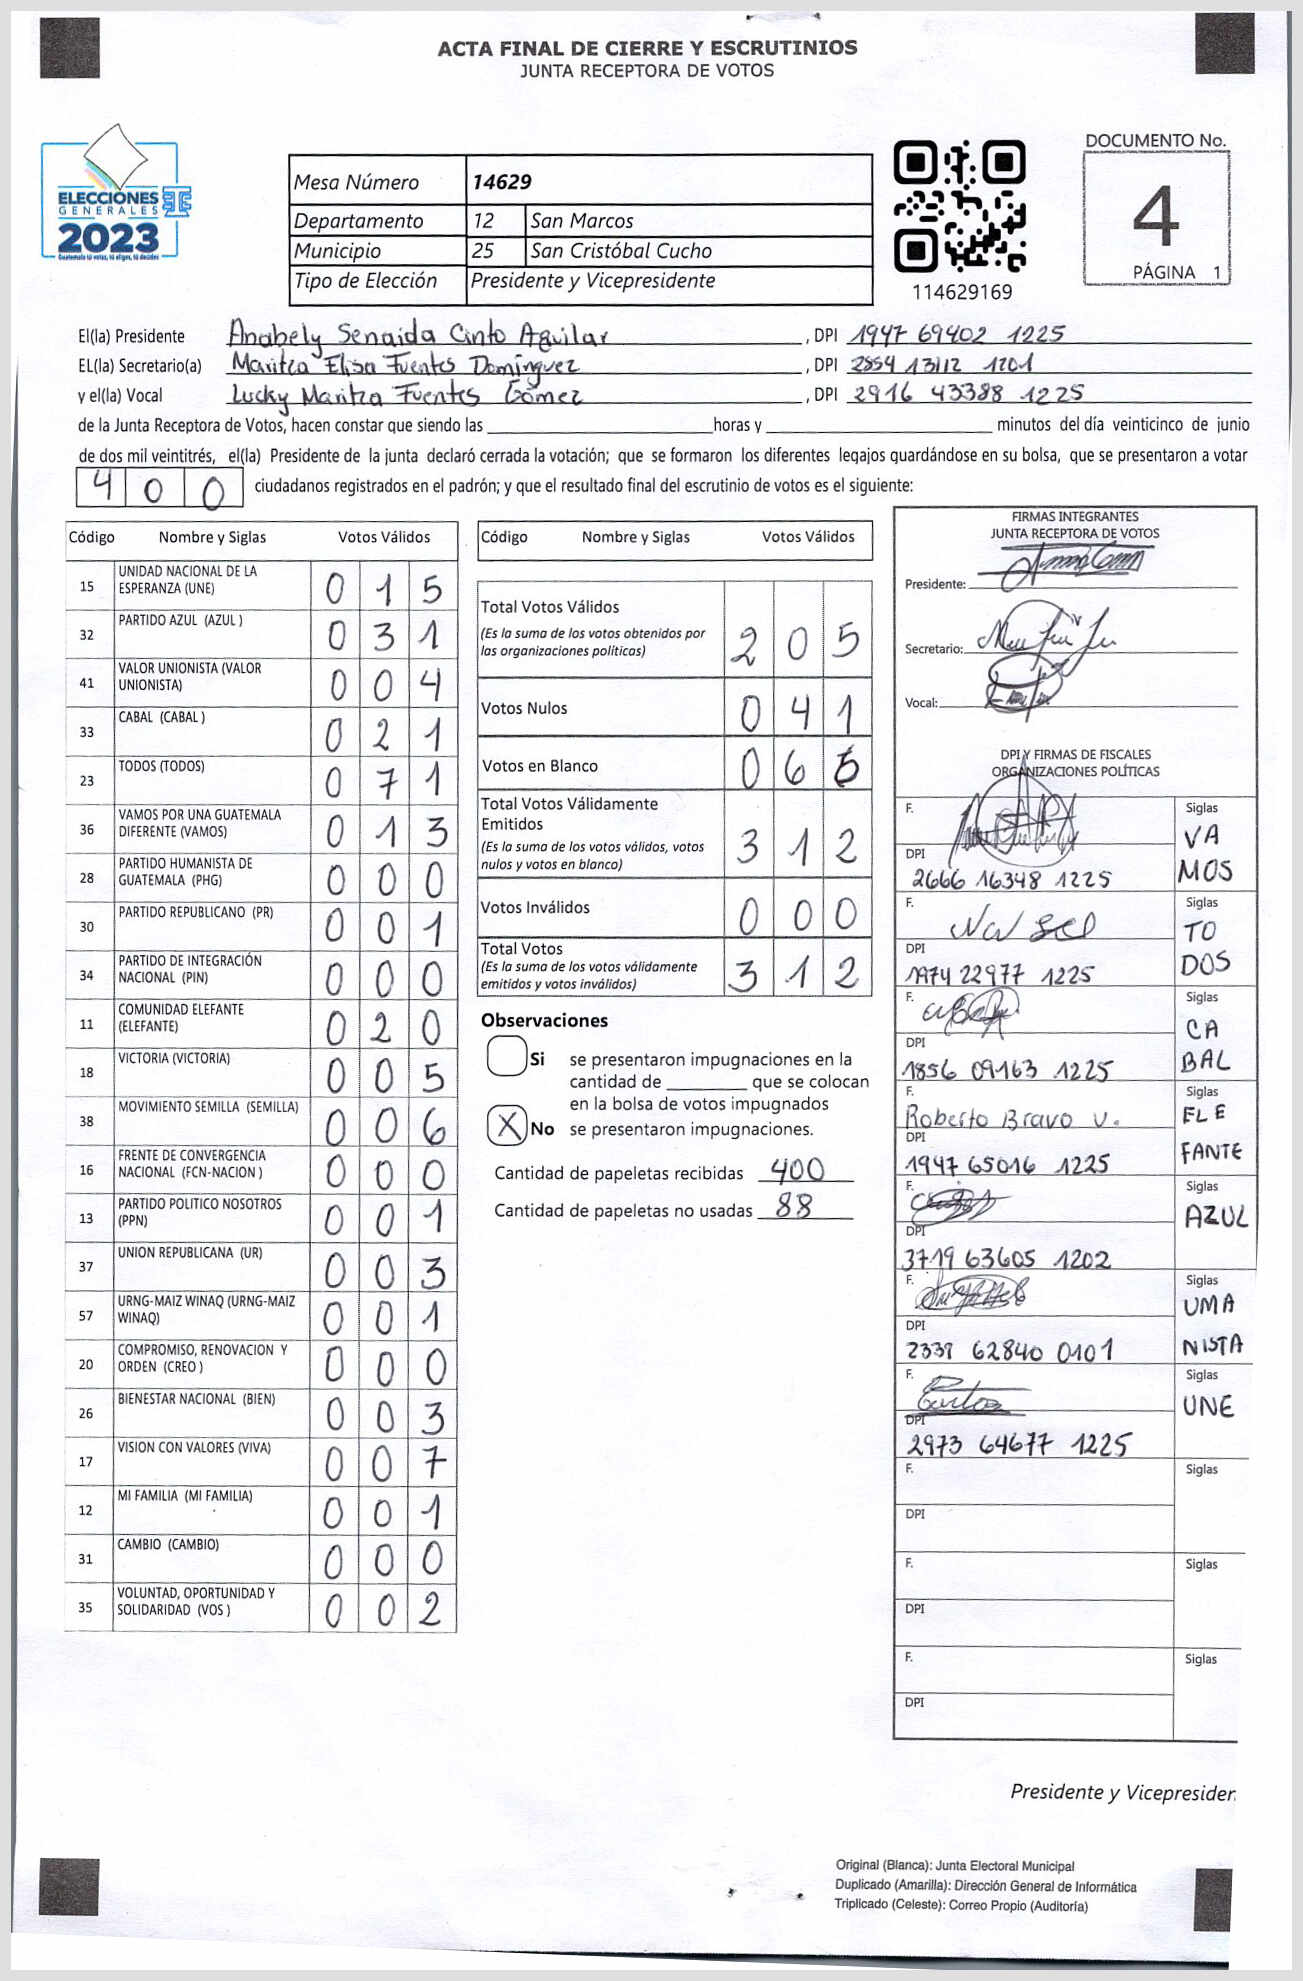 ACTA FINAL DE CIERRE Y ESCRUTINIOS
JUNTA RECEPTORA DE VOTOS
ELECCIONES
GENERALES
2023
Guatemala tú votas, tú eliges, tú decides
Mesa Número 14629
Departamento 12 San Marcos
Municipio 25 San Cristóbal Cucho
Tipo de Elección Presidente y Vicepresidente
114629169
DOCUMENTO No.
4
PÁGINA 1
El(la) Presidente Anabely Senaida Cinto Aguilar, DPI 1947 69402 1225
EL(la) Secretario(a) Maritza Elisa Fuentes Domínguez, DPI 2854 13112 1201
y el(la) Vocal Lucky Maritza Fuentes Gómez, DPI 2916 43388 1225
de la Junta Receptora de Votos, hacen constar que siendo las ___ horas y ___ minutos del día veinticinco de junio
de dos mil veintitrés, el(la) Presidente de la junta declaró cerrada la votación; que se formaron los diferentes legajos guardándose en su bolsa, que se presentaron a votar
400 ciudadanos registrados en el padrón; y que el resultado final del escrutinio de votos es el siguiente:
Código Nombre y Siglas Votos Válidos
15 UNIDAD NACIONAL DE LA ESPERANZA (UNE) 0 1 5
32 PARTIDO AZUL (AZUL ) 0 3 1
41 VALOR UNIONISTA (VALOR UNIONISTA) 0 0 4
33 CABAL (CABAL ) 0 2 1
23 TODOS (TODOS) 0 7 1
36 VAMOS POR UNA GUATEMALA DIFERENTE (VAMOS) 0 1 3
28 PARTIDO HUMANISTA DE GUATEMALA (PHG) 0 0 0
30 PARTIDO REPUBLICANO (PR) 0 0 1
34 PARTIDO DE INTEGRACIÓN NACIONAL (PIN) 0 0 0
11 COMUNIDAD ELEFANTE (ELEFANTE) 0 2 0
18 VICTORIA (VICTORIA) 0 0 5
38 MOVIMIENTO SEMILLA (SEMILLA) 0 0 6
16 FRENTE DE CONVERGENCIA NACIONAL (FCN-NACION ) 0 0 0
13 PARTIDO POLITICO NOSOTROS (PPN) 0 0 1
37 UNION REPUBLICANA (UR) 0 0 3
57 URNG-MAIZ WINAQ (URNG-MAIZ WINAQ) 0 0 1
20 COMPROMISO, RENOVACION Y ORDEN (CREO ) 0 0 0
26 BIENESTAR NACIONAL (BIEN) 0 0 3
17 VISION CON VALORES (VIVA) 0 0 7
12 MI FAMILIA (MI FAMILIA) 0 0 1
31 CAMBIO (CAMBIO) 0 0 0
35 VOLUNTAD, OPORTUNIDAD Y SOLIDARIDAD (VOS ) 0 0 2
Código Nombre y Siglas Votos Válidos
Total Votos Válidos
(Es la suma de los votos obtenidos por las organizaciones políticas) 2 0 5
Votos Nulos 0 4 1
Votos en Blanco 0 6 6
Total Votos Válidamente Emitidos
(Es la suma de los votos válidos, votos nulos y votos en blanco) 3 1 2
Votos Inválidos 0 0 0
Total Votos
(Es la suma de los votos válidamente emitidos y votos inválidos) 3 1 2
Observaciones
Si se presentaron impugnaciones en la
cantidad de ___ que se colocan
en la bolsa de votos impugnados
X No se presentaron impugnaciones.
Cantidad de papeletas recibidas 400
Cantidad de papeletas no usadas 88
FIRMAS INTEGRANTES
JUNTA RECEPTORA DE VOTOS
Presidente:
Secretario:
Vocal:
DPI Y FIRMAS DE FISCALES
ORGANIZACIONES POLÍTICAS
F. Siglas VAMOS
DPI 2666 16348 1225
F. Siglas TODOS
DPI 1974 22977 1225
F. Siglas CABAL
DPI 1856 09163 1225
F. Roberto Bravo V. Siglas ELEFANTE
DPI 1947 65016 1225
F. Siglas AZUL
DPI 3719 63605 1202
F. Siglas UMANISTA
DPI 2339 62840 0101
F. Siglas UNE
DPI 2973 64677 1225
F. Siglas
DPI
F. Siglas
DPI
F. Siglas
DPI
Presidente y Vicepresiden
Original (Blanca): Junta Electoral Municipal
Duplicado (Amarilla): Dirección General de Informática
Triplicado (Celeste): Correo Propio (Auditoría)